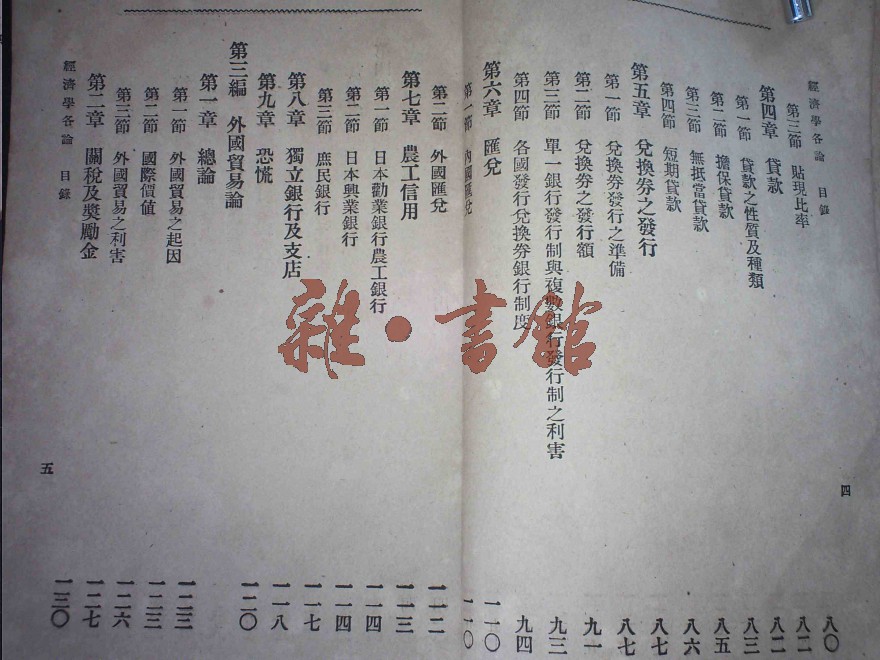 經濟學各論 目錄 四
第三節 貼現比率 八〇
第四章 貸款 八二
第一節 貸款之性質及種類 八二
第二節 擔保貸款 八三
第三節 無抵當貸款 八五
第四節 短期貸款 八六
第五章 兌換券之發行 八七
第一節 兌換券發行之準備 八七
第二節 兌換券之發行額 九一
第三節 單一銀行發行制與複數銀行發行制之利害 九三
第四節 各國發行兌換券銀行制度 九四
第六章 匯兌 一一〇
第一節 內國匯兌 一一〇
第二節 外國匯兌 一一二
第七章 農工信用 一一三
第一節 日本勸業銀行農工銀行 一一四
第二節 日本興業銀行 一一四
第三節 庶民銀行 一一七
第八章 獨立銀行及支店 一一八
第九章 恐慌 一二〇
第三編 外國貿易論
第一章 總論 一二三
第一節 外國貿易之起因 一二三
第二節 國際價值 一二六
第三節 外國貿易之利害 一二七
第二章 關稅及獎勵金 一三〇
經濟學各論 目錄 五
雜·書館